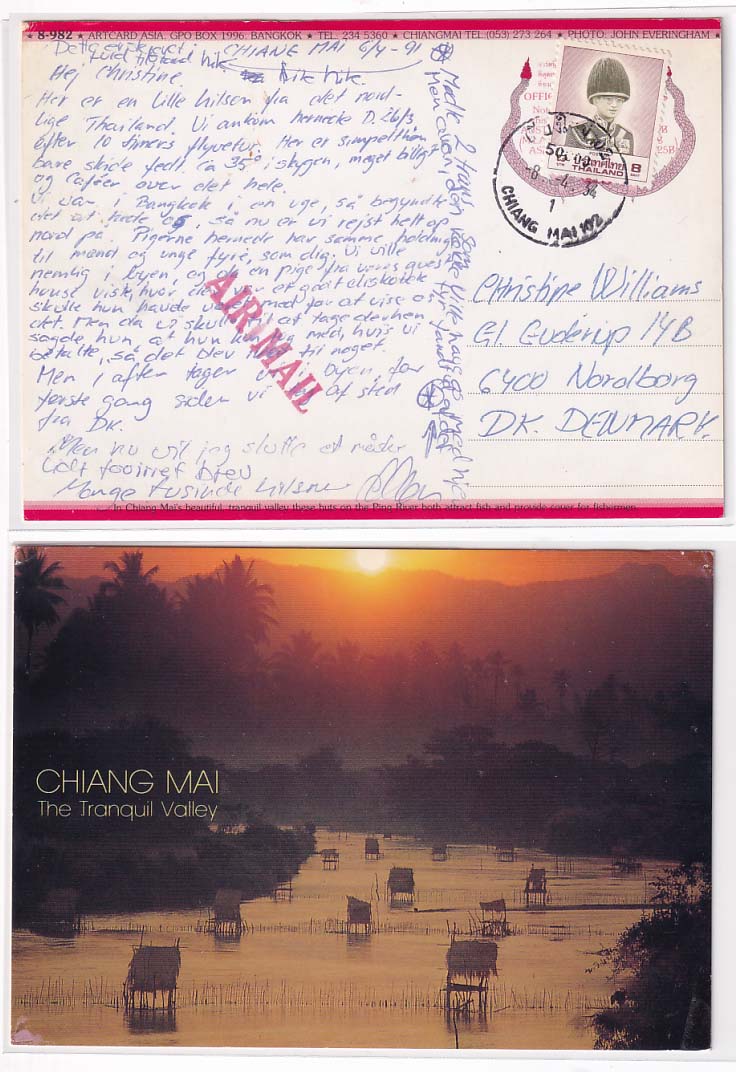 ★ 8-982 ★ ARTCARD ASIA, GPO BOX 1996, BANGKOK ★ TEL. 234 5360 ★ CHIANGMAI TEL (053) 273 264 ★ PHOTO: JOHN EVERINGHAM ★
CHIANG MAI 6/4-91
Hej Christine
hik hik.
Her er en lille hilsen fra det nord-
lige Thailand. Vi ankom hernede D. 26/3
efter 10 timers flyvetur. Her er simpelthen
bare skide fedt, ca 35° i skygen, meget billigt
og caféer over det hele.
Vi var i Bangkok i en uge, så begyndte
det at kede os, så nu er vi rejst helt op
nord på. Pigerne hernede har samme holdning
til mænd og unge fyre, som dig. Vi ville
nemlig i byen, og da en pige fra vores guest
house viste, hvor der var et godt diskotek
skulle hun havde været med for at vise os
det. Men da vi skulle til at tage derhen
sagde hun, at hun kun tog med, hvis vi
betalte, så det blev ikke til noget.
Men i aften tager vi i byen, for
første gang siden vi tog af sted
fra DK.
Men nu vil jeg slutte et måske
lidt forvirret brev
Mange tusinde hilsner
Mødte 2 trans som ville have os med hjem
AIR MAIL
OFFIC
8
THAILAND
CHIANG MAI 102
1
Christine Williams
Gl. Guderup 14B
6400 Nordborg
DK. DENMARK.
In Chiang Mai's beautiful, tranquil valley these huts on the Ping River both attract fish and provide cover for fishermen.
CHIANG MAI
The Tranquil Valley